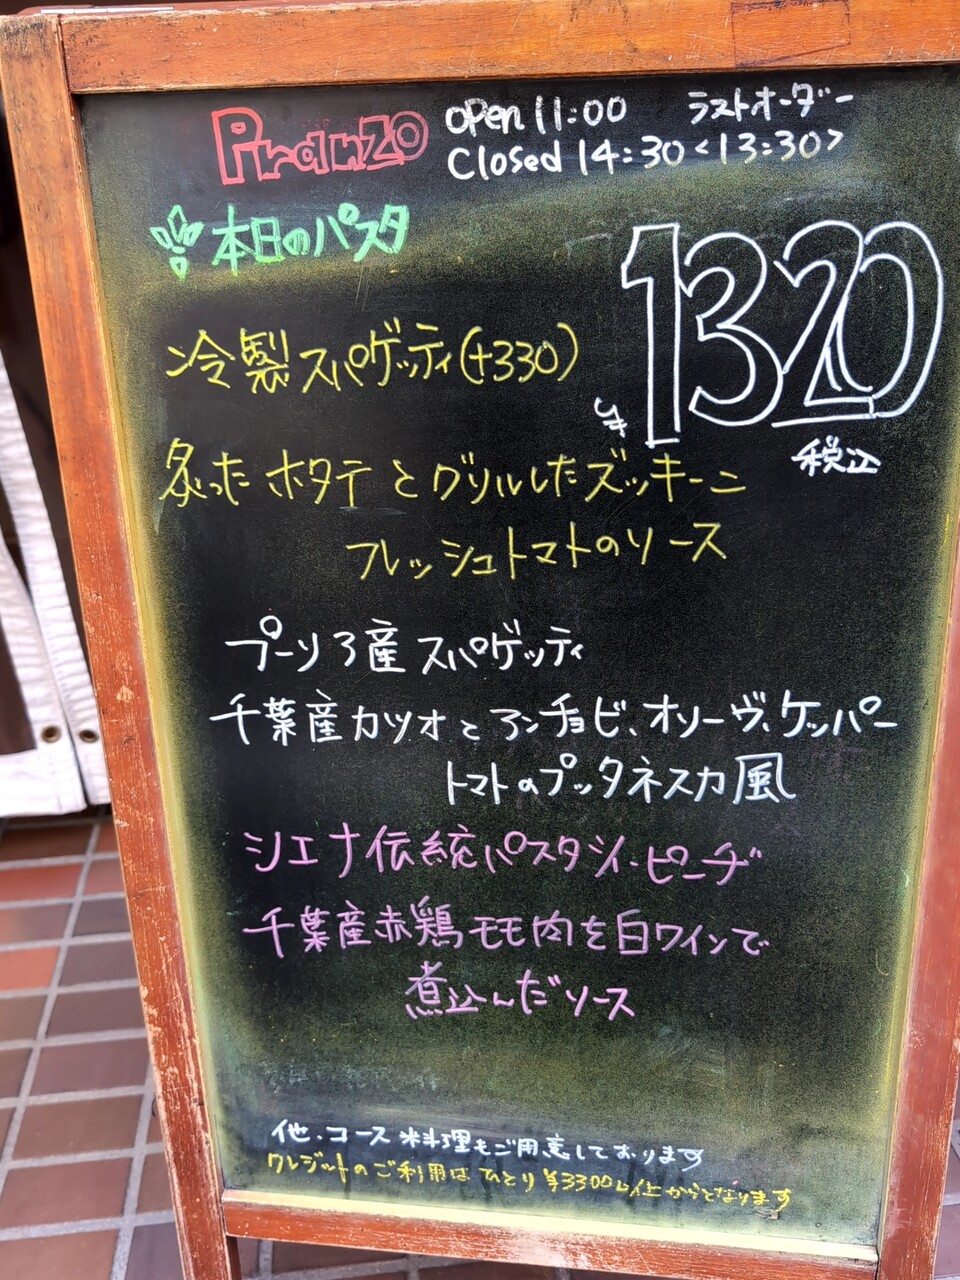 Pranzo
open 11:00 ラストオーダー
Closed 14:30 <13:30>
本日のパスタ
1320
税込
冷製スパゲッティ(+330)
炙ったホタテとグリルしたズッキーニ
フレッシュトマトのソース
プーリア産スパゲッティ
千葉産カツオとアンチョビ、オリーヴ、ケッパー
トマトのプッタネスカ風
シエナ伝統パスタ ピーチ
千葉産赤鶏モモ肉を白ワインで
煮込んだソース
他、コース料理もご用意しております
クレジットのご利用はひとり¥3300以上からとなります